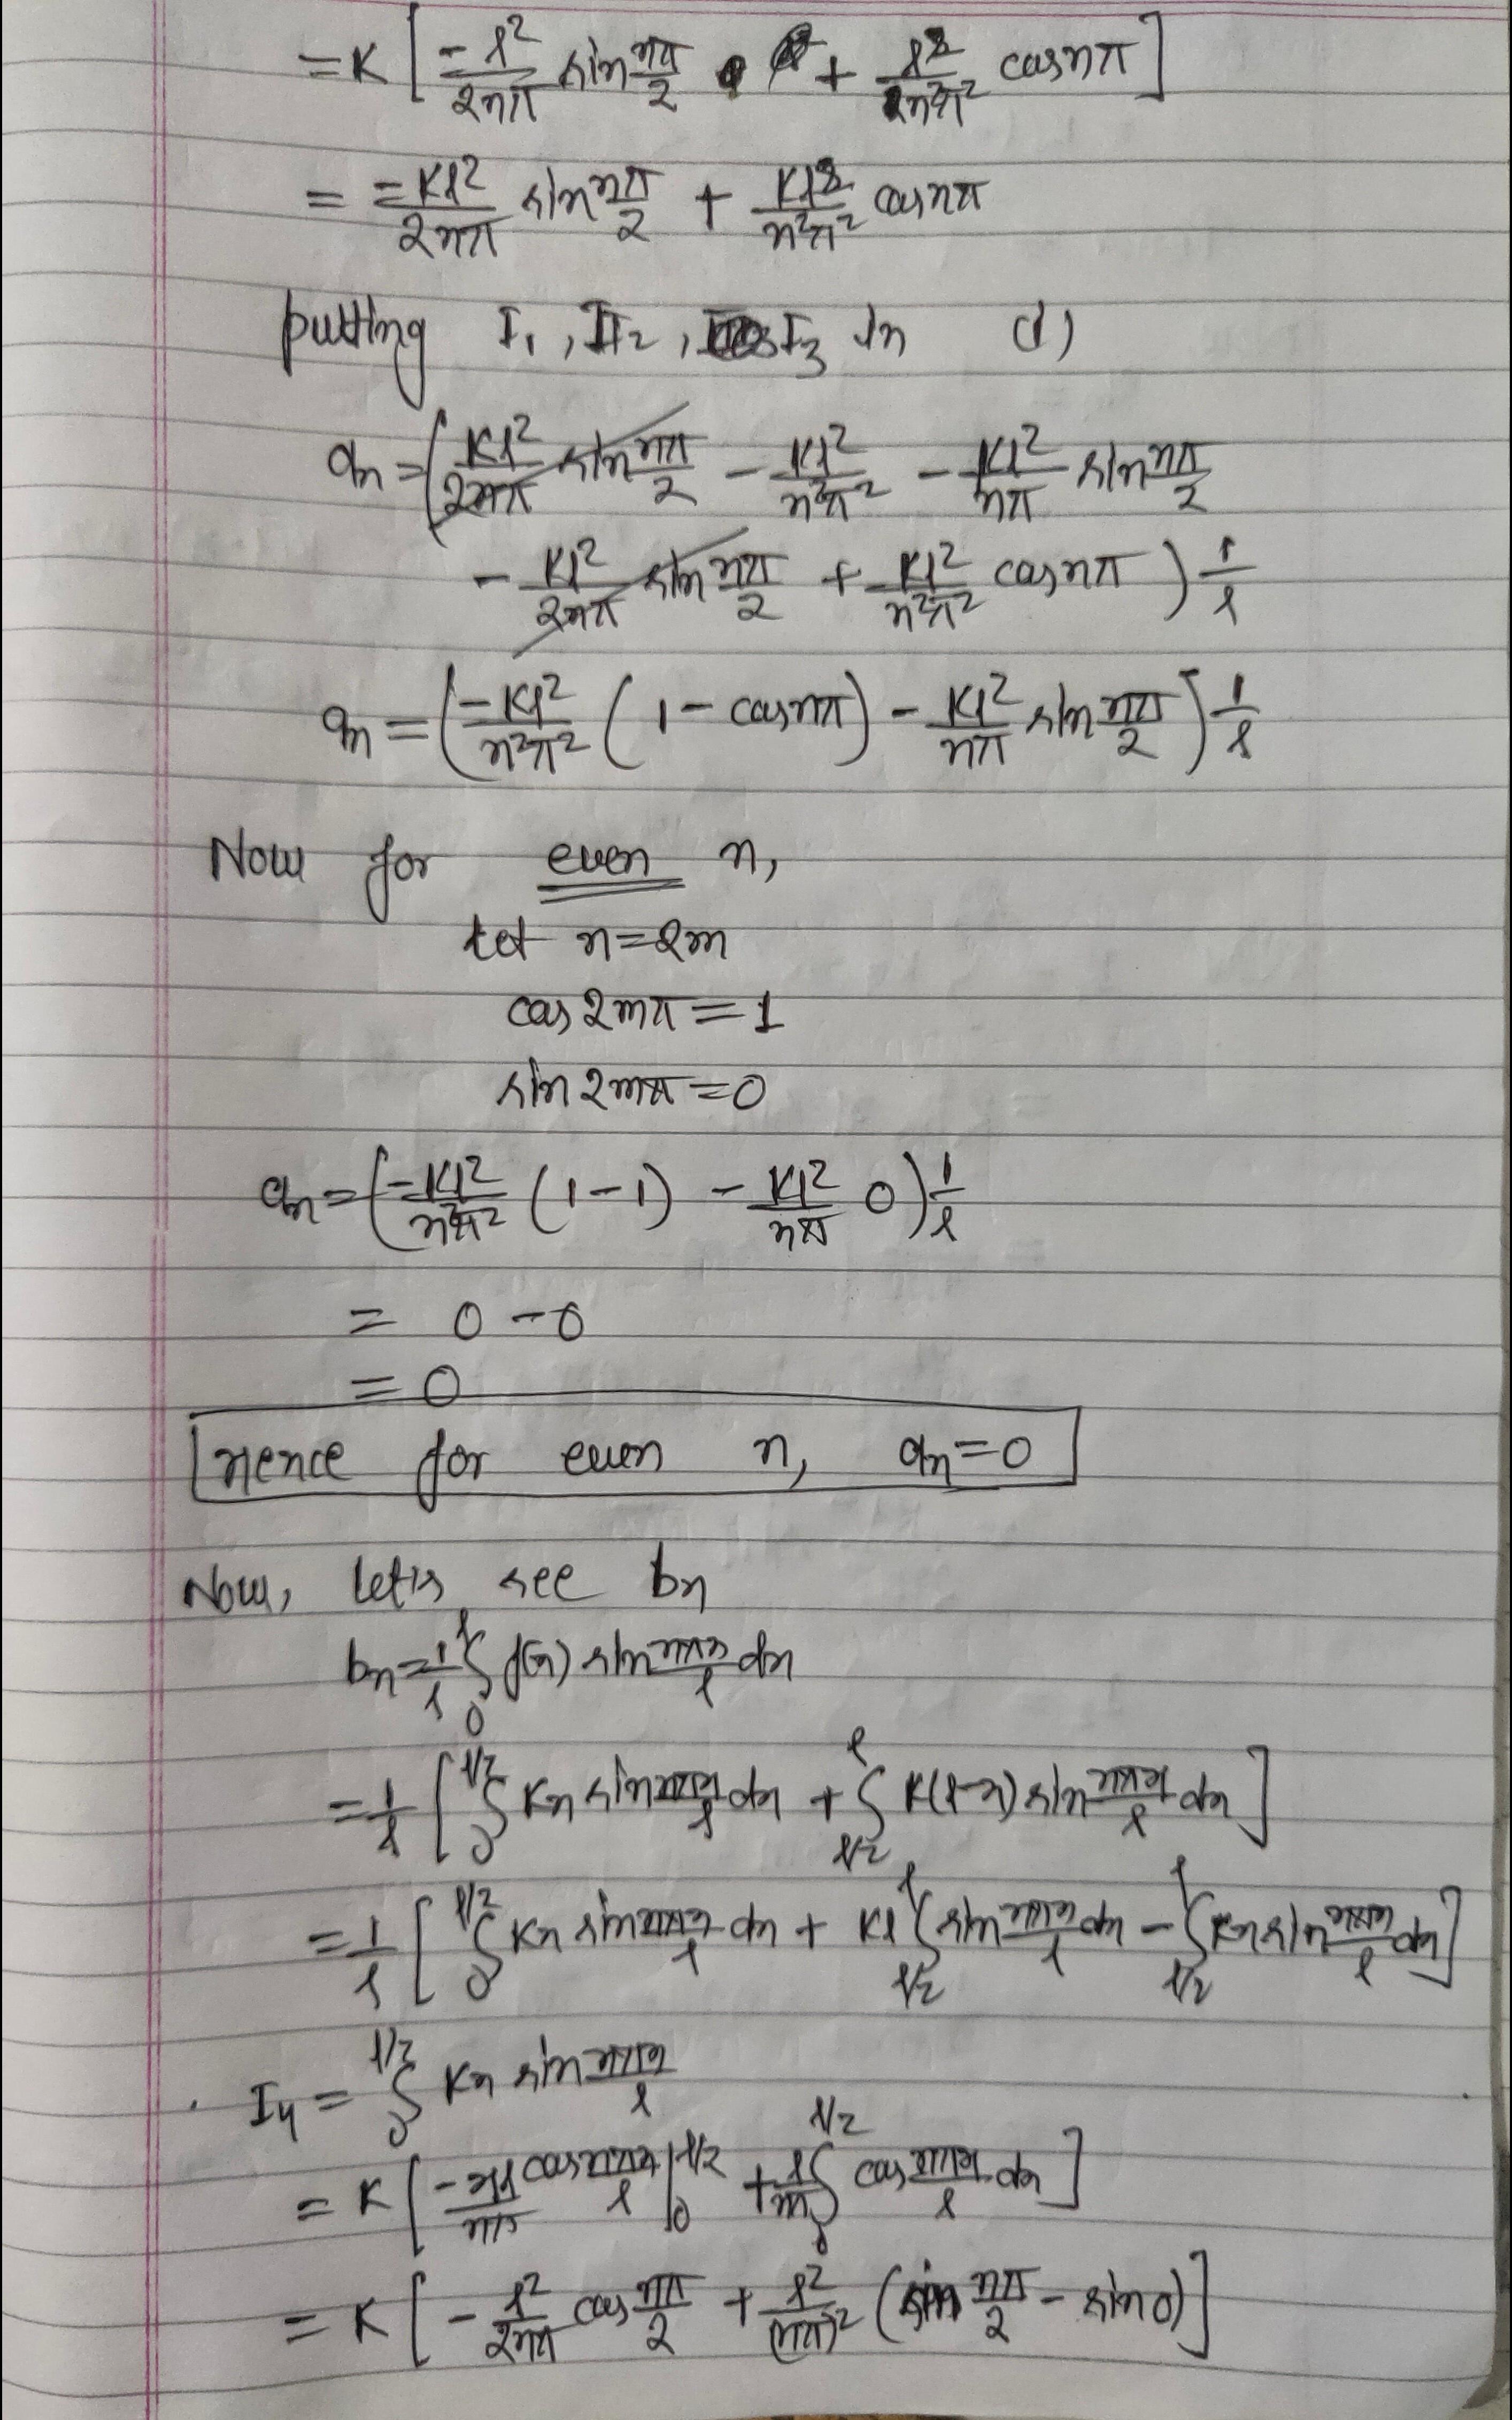 = K [ -l²/2nπ sin nπ/2 + l²/n²π² cos nπ ]
= -Kl²/2nπ sin nπ/2 + Kl²/n²π² cos nπ
putting I₁, I₂, I₃ in (1)
aₙ = ( Kl²/2nπ sin nπ/2 - Kl²/n²π² - Kl²/nπ sin nπ/2
- Kl²/2nπ sin nπ/2 + Kl²/n²π² cos nπ ) 1/l
aₙ = ( -Kl²/n²π² ( 1 - cos nπ ) - Kl²/nπ sin nπ/2 ) 1/l
Now for even n,
let n = 2m
cos 2mπ = 1
sin 2mπ = 0
aₙ = ( -Kl²/n²π² (1-1) - Kl²/nπ 0 ) 1/l
= 0 - 0
= 0
Hence for even n, aₙ = 0
Now, let's see bₙ
bₙ = 1/l ∫₀^l f(x) sin nπx/l dx
= 1/l [ ∫₀^{l/2} Kx sin nπx/l dx + ∫_{l/2}^l K(l-x) sin nπx/l dx ]
= 1/l [ ∫₀^{l/2} Kx sin nπx/l dx + Kl ∫_{l/2}^l sin nπx/l dx - ∫_{l/2}^l Kx sin nπx/l dx ]
I₄ = ∫₀^{l/2} Kx sin nπx/l
= K [ -xl/nπ cos nπx/l |₀^{l/2} + l/nπ ∫₀^{l/2} cos nπx/l dx ]
= K [ - l²/2nπ cos nπ/2 + l²/(nπ)² ( sin nπ/2 - sin 0 ) ]